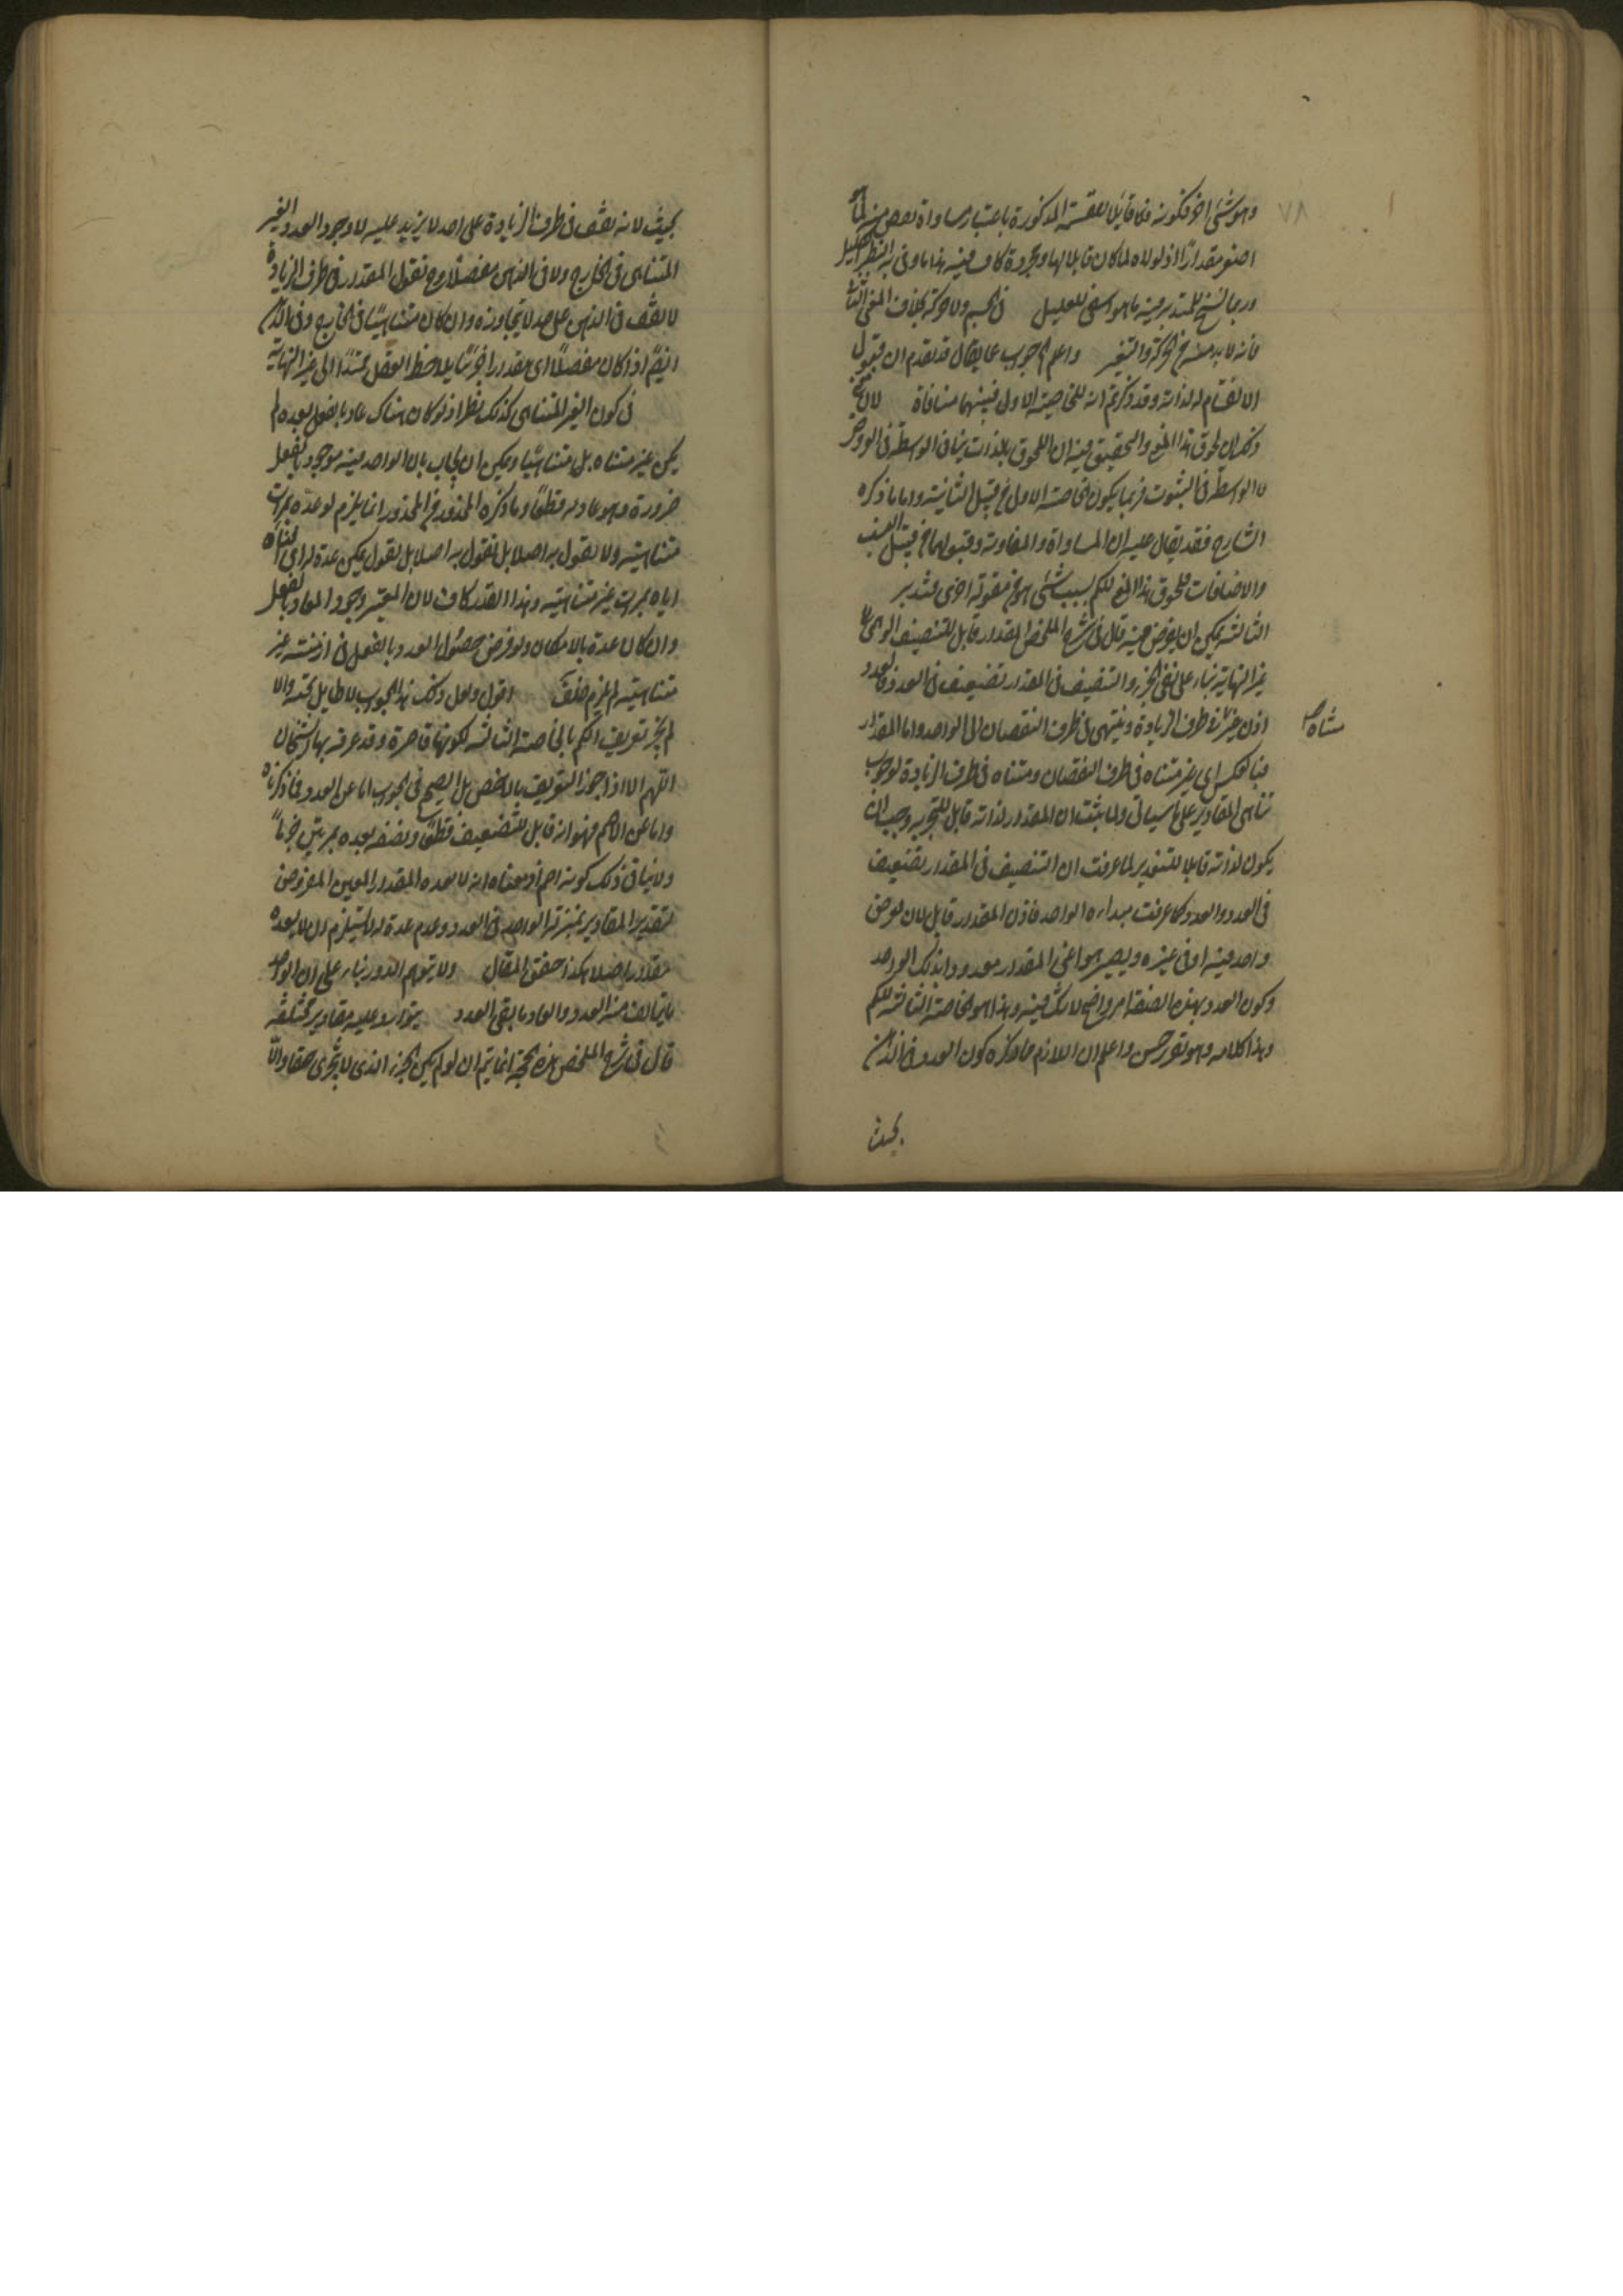 ٧٨
وهو شئ اخر فكونه فما قابلا للقسمة المذكورة باعتبار مساواة بعض منه لما
اصغر مقدارا اذ لولاه لما كان قابلا لها ومجردة كاف فيه هذا ما وفى به النظر الجليل
وربما نسخ للمتدبر فيه ما هو اسنى للعليل فى الجسم ولا حركة بخلاف المعنى الثا
فانه لا بد فيه من الحركة والتغير واعلم الجواب عما يقال قد تقدم ان قبول
الانقسام له لذاته وقد ذكرتم انه للخاصية الاولى فبينهما منافاة لان
وكذا لحوق هذا المعنى والتحقيق فيه ان اللحوق بالذات ينافى الواسطة فى العروض
لا الواسطة فى الثبوت فربما يكون الخاصة الاولى من قبيل الثانية واما ما ذكره
الشارح فقد يقال عليه ان المساواة والمفاوتة وقبولهما من قبيل النسب
والاضافات فلحوق هذا المعنى للكم بسبب شئ هو من مقولة اخرى فتدبر
الثالثة يمكن ان يفرض فيه قال فى شرح الملخص المقدار قابل للتنصيف الوهمى الى
غير النهاية بناء على نفى الجزء والتنصيف فى المقدار تضعيف فى العدد فالعدد
اذن غير فى طرف الزيادة وينتهى فى طرف النقصان الى الواحد واما المقدار
متناه صح
فبالعكس اى غير متناه فى طرف النقصان ومتناه فى طرف الزيادة لوجوب
تناهى المقادير على ما سياتى ولما ثبت ان المقدار لذاته قابل للتجزية وجب ان
يكون لذاته قابلا للتقدير لما عرفت ان التنصيف فى المقدار تضعيف
فى العدد والعدد كما عرفت مبداءه الواحد فاذن المقدار قابل لان يفرض
واحد فيه او فى غيره ويصير هو اعنى المقدار معدودا بذلك الواحد
وكون العدد بهذه الصفة امر واضح لا شك فيه وهذا هو الخاصة الثالثة للكم
وهذا كلامه وهو تقرير حسن واعلم ان اللازم مما ذكره كون العدد فى الذهن
بحيث
بحيث لانه يقف فى طرف الزيادة على احد لا يزيد عليه لا وجود العدد الغير
المتناهى فى الخارج ولا فى الذهن مفصلا وح نقول المقدار فى طرف الزيادة
لا يقف فى الذهن على حد لا يتجاوزه وان كان متناهيا فى الخارج وفى الذهن
ايضا اذا كان مفصلا اى مقدارا جزئيا يلاحظ العقل ممتدا الى غير النهاية
فى كون الغير المتناهى كذلك نظر اذ لو كان هناك عاد بالفعل بعده لم
يكن غير متناه بل متناهيا ويمكن ان يجاب بان الواحد فيه موجود بالفعل
ضرورة وهو عاد له قطعا وما ذكره المحذور من المحذور انما يلزم لو عده بمرات
متناهية ولا نقول به اصلا بل نقول به اصلا بل نقول يمكن عده له اى افناه
اياه بمرات غير متناهية وهذا القدر كاف لان المعتبر وجود العاد بالفعل
وان كان عده بالامكان ولو فرض حصول العدد بالفعل فى ازمنة غير
متناهية لم يلزم خلف اقول ولعل ذلك هذا الجواب لا طايل تحته والا
لم يجز تعريف الكم بالخاصة الثالثة لكونها قاصرة وقد عرفه بها الشيخان
اللهم الا اذا جوز التعريف بالاخص بل الصحيح فى الجواب اما عن العدد فما ذكرناه
واما عن الاصم فهو انه قابل للتضعيف قطعا ونصفه يعده بمرتين جزما
ولا ينافى ذلك كونه اصم اذ معناه انه لا يعده المقدار المعين المفروض
لتقدير المقادير بمنزلة الواحد فى العدد وعدم عده له لا يستلزم ان لا يعده
مقدار اصلا هكذا حقق المقال ولا يتوهم الدور بناء على ان الواحد
ما يتالف منه العدد والعاد ما يفنى العدد يتوارد عليه مقادير مختلفة
قال فى شرح الملخص هذه الحجة انما يتم ان لو لم يكن الجزء الذى لا يتجزى حقا والا